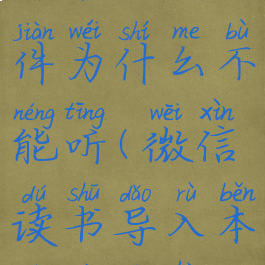 jiàn wéi shí me bù
件为什么不
néng tīng wēi xìn
能听(微信
dú shū dǎo rù běn
读书导入本